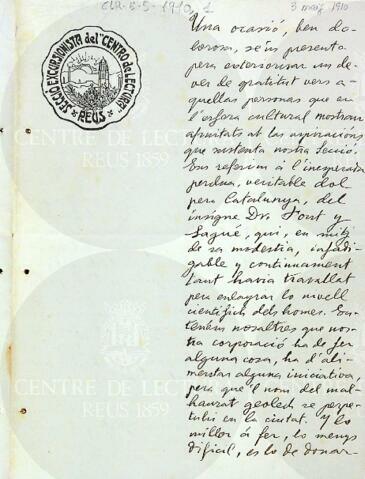 CLR-B-5-1910, 1
3 maig 1910
SECCIÓ EXCURSIONISTA del "CENTRO de LECTURA"
REUS
Una ocasió, ben do-
lorosa, se'ns presenta
pera exteriorisar un de-
ver de gratitut vers a-
quellas personas que en
l'esfera cultural mostran
afinitats ab las aspiracions
que sustenta nostra Secció.
Ens referim á l'inesperada
perdua, veritable dol
pera Catalunya, del
insigne Dr. Font y
Sagué, qui, en mitj
de sa modestia, infadi-
gable y continuament
tant havia travallat
pera enlayrar lo nivell
científich dels homes. En-
tenem nosaltres que nos-
tra corporació ha de fer
alguna cosa, ha d'ali-
mentar alguna iniciativa,
pera que 'l nom del mal-
haurat geolech se perpe-
tuhi en la ciutat. Y lo
millor á fer, lo menys
dificil, es lo de donar-
CENTRE DE LECTURA
REUS 1859
CENTRE DE LECTURA
REUS 1859